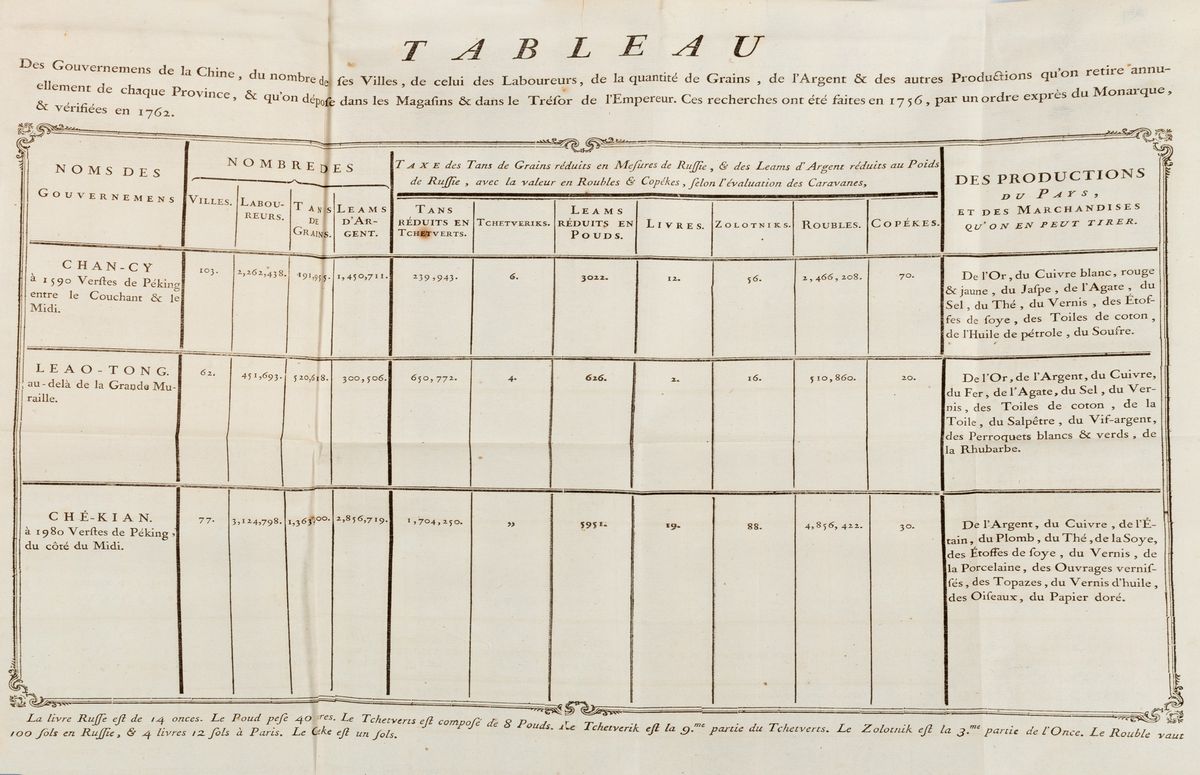 TABLEAU
Des Gouvernemens de la Chine, du nombre de ſes Villes, de celui des Laboureurs, de la quantité de Grains, de l'Argent & des autres Productions qu'on retire annu-
ellement de chaque Province, & qu'on dépoſe dans les Magaſins & dans le Tréſor de l'Empereur. Ces recherches ont été faites en 1756, par un ordre exprès du Monarque,
& vérifiées en 1762.
NOMS DES
GOUVERNEMENS
NOMBRE DES
VILLES.
LABOU-
REURS.
TANS
DE
GRAINS.
LEAMS
D'AR-
GENT.
TAXE des Tans de Grains réduits en Meſures de Ruſſie, & des Leams d'Argent réduits au Poids
de Ruſſie, avec la valeur en Roubles & Copékes, ſelon l'évaluation des Caravanes,
TANS
RÉDUITS EN
TCHETVERTS.
TCHETVERIKS.
LEAMS
RÉDUITS EN
POUDS.
LIVRES.
ZOLOTNIKS.
ROUBLES.
COPÉKES.
DES PRODUCTIONS
DU PAYS,
ET DES MARCHANDISES
QU'ON EN PEUT TIRER.
CHAN-CY
à 1590 Verſtes de Péking
entre le Couchant & le
Midi.
103.
2,262,438.
191,955.
1,450,711.
239,943.
6.
3022.
12.
56.
2,466,208.
70.
De l'Or, du Cuivre blanc, rouge
& jaune, du Jaſpe, de l'Agate, du
Sel, du Thé, du Vernis, des Étof-
fes de ſoye, des Toiles de coton,
de l'Huile de pétrole, du Soufre.
LEAO-TONG.
au-delà de la Grande Mu-
raille.
62.
451,693.
520,618.
300,506.
650,772.
4.
626.
2.
16.
510,860.
20.
De l'Or, de l'Argent, du Cuivre,
du Fer, de l'Agate, du Sel, du Ver-
nis, des Toiles de coton, de la
Toile, du Salpêtre, du Vif-argent,
des Perroquets blancs & verds, de
la Rhubarbe.
CHÉ-KIAN.
à 1980 Verſtes de Péking,
du côté du Midi.
77.
3,124,798.
2,856,719.
1,704,250.
"
5951.
19.
88.
4,856,422.
30.
De l'Argent, du Cuivre, de l'É-
tain, du Plomb, du Thé, de la Soye,
des Étoffes de ſoye, du Vernis, de
la Porcelaine, des Ouvrages verniſ-
ſés, des Topazes, du Vernis d'huile,
des Oiſeaux, du Papier doré.
La livre Ruſſe eſt de 14 onces. Le Poud peſe 40 Le Tchetverts eſt compoſé de 8 Pouds. Le Tchetverik eſt la 9.me partie du Tchetverts. Le Zolotnik eſt la 3.me partie de l'Once. Le Rouble vaut
100 ſols en Ruſſie, & 4 livres 12 ſols à Paris. Le eſt un ſols.